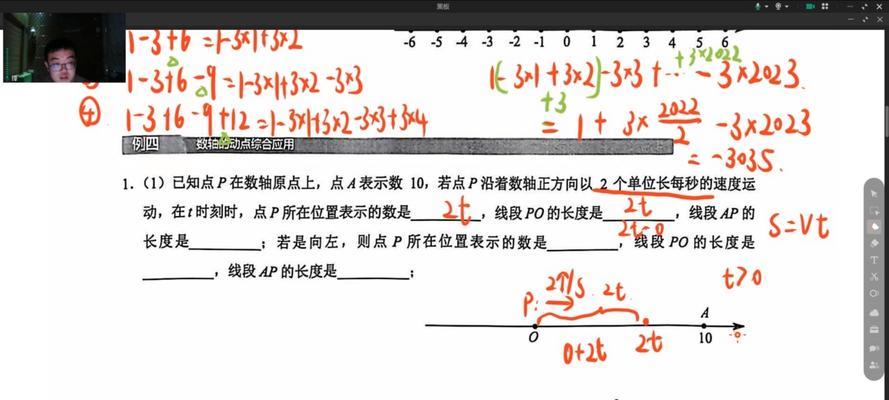 黑板
-6 -5 -4 -3 -2 -1 0 1 2 3 4 5 6
1-3+6 =1-3×1+3×2
1-3+6-9=1-3×1+3×2-3×3
④ 1-3+6-9+12=1-3×1+3×2-3×3+3×4
1(-3×1+3×2)-3×3+…+3×2022-3×2023
+3
= 1 + 3×2022/2 -3×2023
= -3035.
例四 数轴的动点综合应用
1.(1)已知点 P 在数轴原点上，点 A 表示数 10，若点 P 沿着数轴正方向以 2 个单位长每秒的速度运
动，在 t 时刻时，点 P 所在位置表示的数是 2t ，线段 PO 的长度是 2t ，线段 AP 的
2t-0
S=Vt
长度是________；若是向左，则点 P 所在位置表示的数是________，线段 PO 的长度是
________，线段 AP 的长度是________；
t>0
P: 2个/s 2t
A
O 10
0+2t 2t